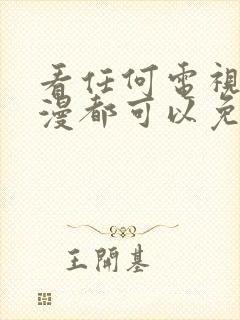 看任何電視
漫都可以免
王開基